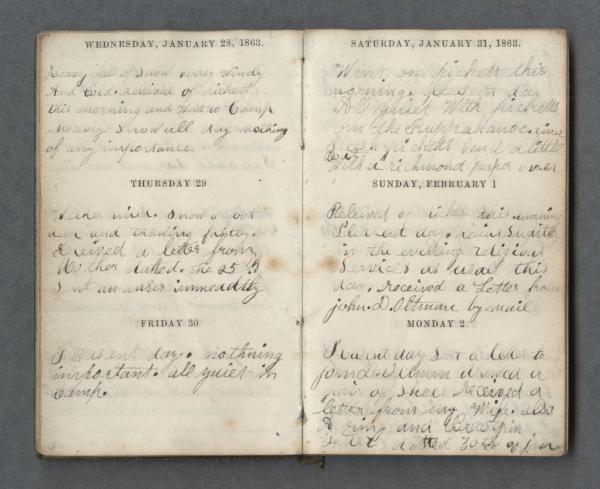 WEDNESDAY, JANUARY 28, 1863.
Heavy fall of Snow verry Windy
And Cold. received of picketts
this morning and Went to Camp
Snow all day nothing
of any importance
THURSDAY 29
mild. Snow a foot
deep and thawing faster.
Received a letter from
Mother dated. the 25th
Sent an anser immeadtly
FRIDAY 30
Pleasent day. nothning
importent. all quiet in
Camp.
SATURDAY, JANUARY 31, 1863.
Went on picketts this
morning. pleasent day
All quiet With picketts
on the river
picketts send a little
With a richmond paper over
SUNDAY, FEBRUARY 1
Releived of this morning
Plesent day.
in the evening religious
Services as usal this
day. received a Letter from
john. D. Oltman by mail
MONDAY 2
day Sent a letter to
john D. Oltman a
pair of Shoes received a
letter from my Wife. also
A ring and Breastpin
dated 30th of jan